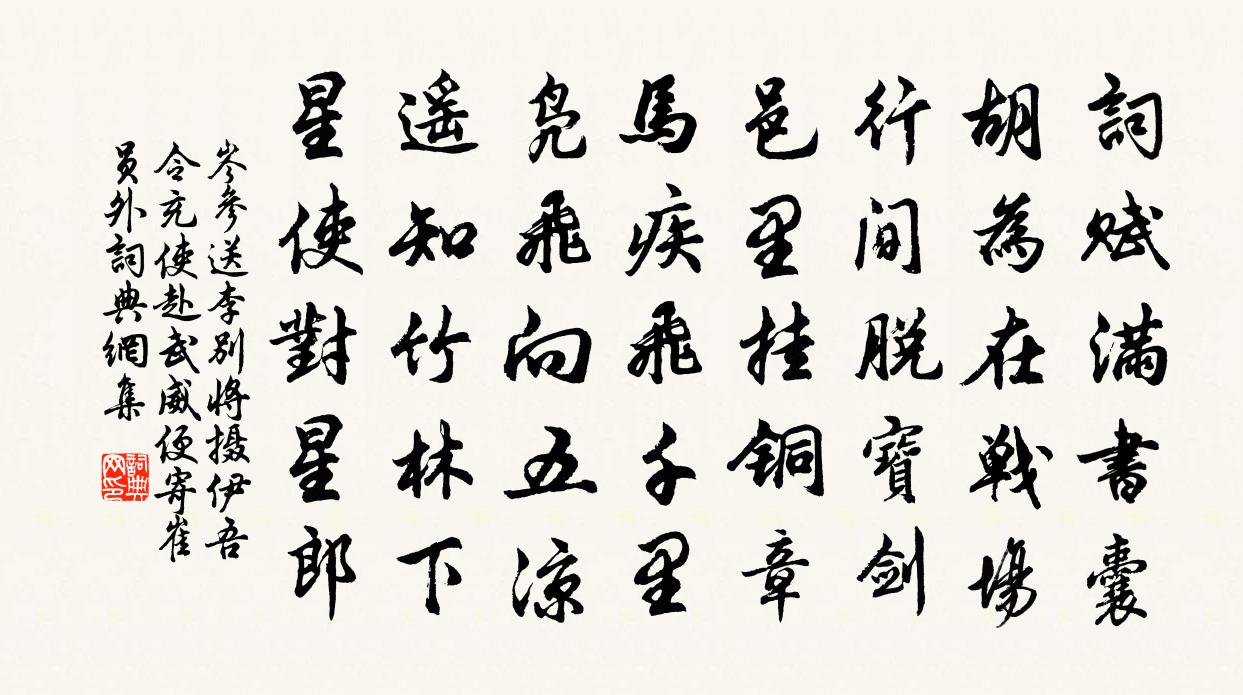 詞賦滿書囊
胡為在戰場
行間脫寶劍
邑里挂銅章
馬疾飛千里
凫飛向五涼
遥知竹林下
星使對星郎
岑參送李別將摄伊吾
令充使赴武威便寄崔
員外詞典網集
詞典
网印